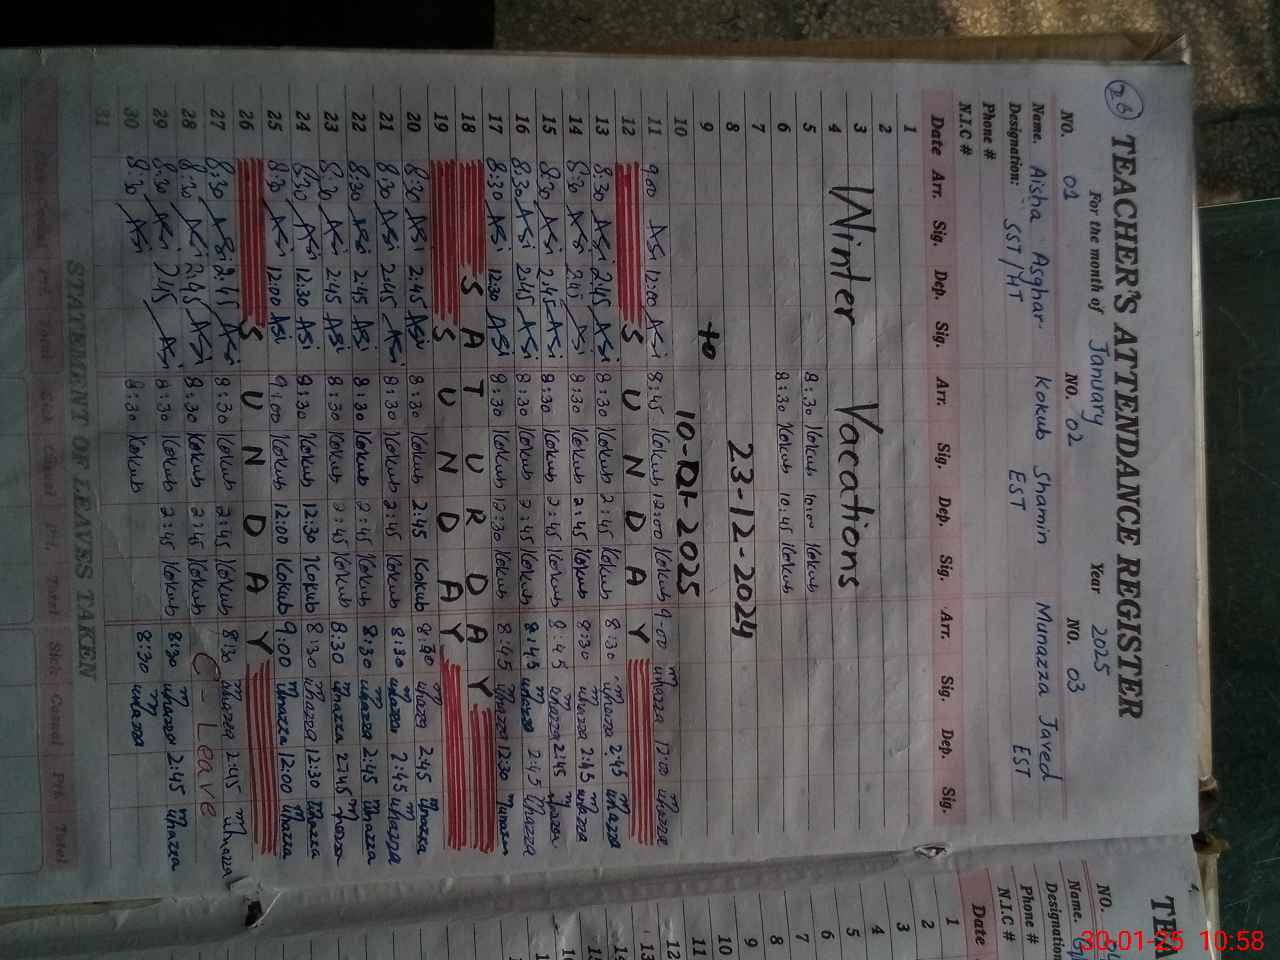 26
TEACHER'S ATTENDANCE REGISTER
For the month of January Year 2025
NO. 01 NO. 02 NO. 03
Name. Aisha Asghar. Kokub Shamin Munazza Javed
Designation: SST/MT EST EST
Phone #
N.I.C #
Date Arr. Sig. Dep. Sig. Arr. Sig. Dep. Sig. Arr. Sig. Dep. Sig.
1
2
3 Winter Vacations
4
5 8:30 Kokub 10:00 Kokub
6 8:30 Kokub 10:45 Kokub
7
8 23-12-2024
9 to
10 10-01-2025
11 9:00 ASi 12:00 ASi 8:45 Kokub 12:00 Kokub 9-00 Mnazza 12:00 Mnazza
12 SUNDAY
13 8:30 ASi 2:45 ASi 8:30 Kokub 2:45 Kokub 8:30 Mnazza 2:45 Mnazza
14 8:30 ASi 2:45 ASi 8:30 Kokub 2:45 Kokub 8:30 Mnazza 2:45 Mnazza
15 8:30 ASi 2:45 ASi 8:30 Kokub 2:45 Kokub 8:45 Mnazza 2:45 Mnazza
16 8:30 ASi 2:45 ASi 8:30 Kokub 2:45 Kokub 8:45 Mnazza 2:45 Mnazza
17 8:30 ASi 12:30 ASi 8:30 Kokub 12:30 Kokub 8:45 Mnazza 12:30 Mnazza
18 SATURDAY
19 SUNDAY
20 8:30 ASi 2:45 ASi 8:30 Kokub 2:45 Kokub 8:30 Mnazza 2:45 Mnazza
21 8:30 ASi 2:45 ASi 8:30 Kokub 2:45 Kokub 8:30 Mnazza 2:45 Mnazza
22 8:30 ASi 2:45 ASi 8:30 Kokub 2:45 Kokub 8:30 Mnazza 2:45 Mnazza
23 8:30 ASi 2:45 ASi 8:30 Kokub 2:45 Kokub 8:30 Mnazza 2:45 Mnazza
24 8:30 ASi 12:30 ASi 8:30 Kokub 12:30 Kokub 8:30 Mnazza 12:30 Mnazza
25 8:30 ASi 12:00 ASi 9:00 Kokub 12:00 Kokub 9:00 Mnazza 12:00 Mnazza
26 SUNDAY
27 8:30 ASi 2:45 ASi 8:30 Kokub 2:45 Kokub 8:30 Mnazza 2:45 Mnazza
28 8:30 ASi 2:45 ASi 8:30 Kokub 2:45 Kokub C-Leave
29 8:30 ASi 2:45 ASi 8:30 Kokub 2:45 Kokub 8:30 Mnazza 2:45 Mnazza
30 8:30 ASi 8:30 Kokub 8:30 Mnazza
31
STATEMENT OF LEAVES TAKEN
Total Total Sick Casual Prt. Total
NO.
Name.
Designation
Phone #
N.I.C #
Date
1
2
3
4
5
6
7
8
9
10
11
12
13
14
30-01-25 10:58